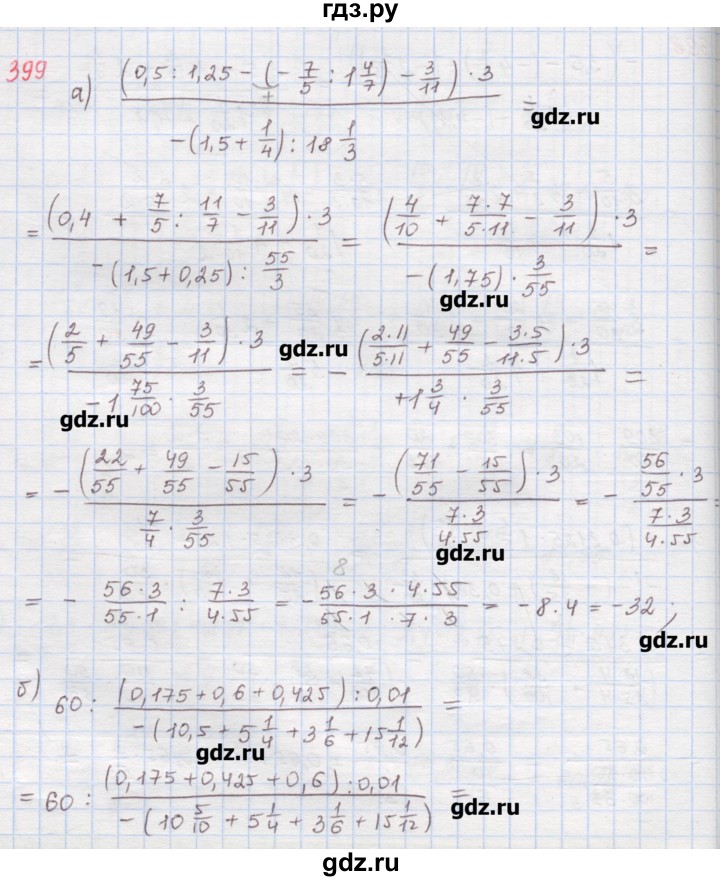 гдз.ру
399
а) ((0,5 : 1,25 − (− 7/5 : 1 4/7) − 3/11) · 3) / (−(1,5 + 1/4) : 18 1/3) =
gdz.ru
= ((0,4 + 7/5 : 11/7 − 3/11) · 3) / (−(1,5 + 0,25) : 55/3) = ((4/10 + 7·7/5·11 − 3/11) · 3) / (−(1,75) · 3/55) =
gdz.ru
= ((2/5 + 49/55 − 3/11) · 3) / (−1 75/100 · 3/55) = − ((2·11/5·11 + 49/55 − 3·5/11·5) · 3) / (+1 3/4 · 3/55) =
gdz.ru
gdz.ru
= − ((22/55 + 49/55 − 15/55) · 3) / (7/4 · 3/55) = − ((71/55 − 15/55) · 3) / (7·3/4·55) = − (56/55 · 3) / (7·3/4·55) =
gdz.ru
= − 56·3/55·1 : 7·3/4·55 = − 56 · 3 · 4 · 55 / 55 · 1 · 7 · 3 = −8·4 = −32 ;
8
gdz.ru
б) 60 : ((0,175 + 0,6 + 0,425) : 0,01) / (−(10,5 + 5 1/4 + 3 1/6 + 15 1/12)) =
gdz.ru
= 60 : ((0,175 + 0,425 + 0,6) : 0,01) / (−(10 5/10 + 5 1/4 + 3 1/6 + 15 1/12)) =
gdz.ru
gdz.ru